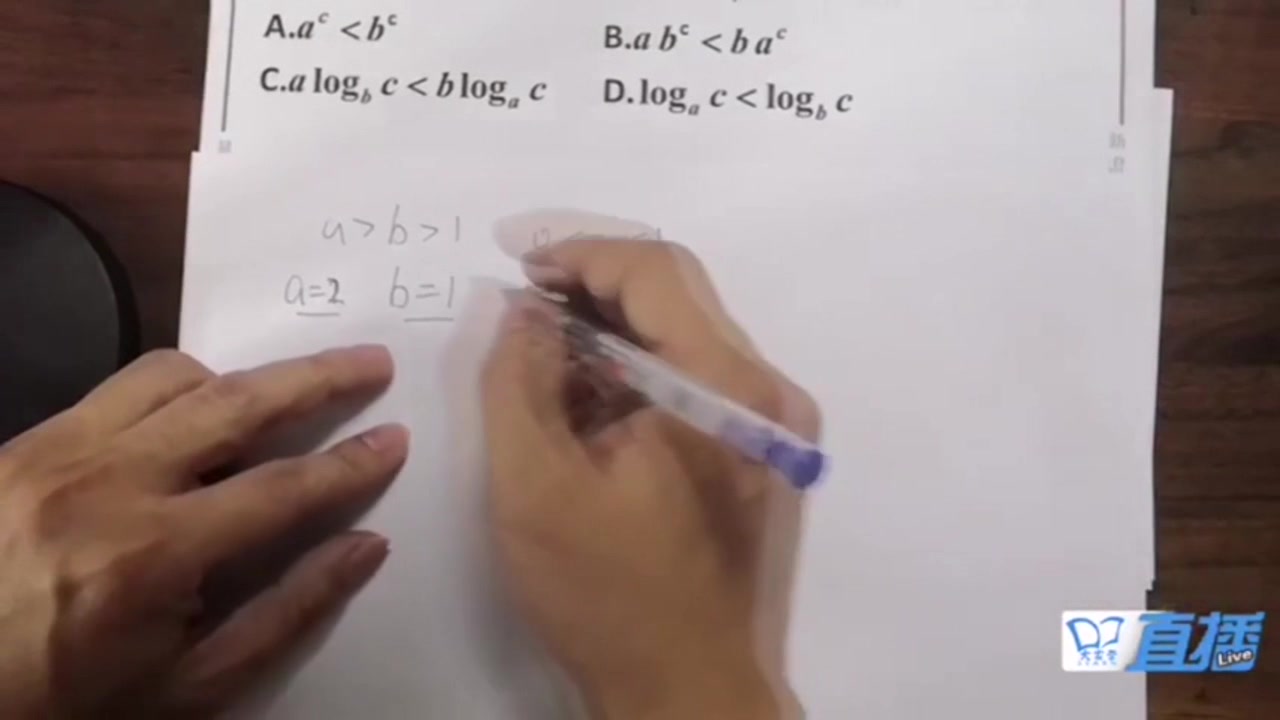 A.aᶜ < bᶜ
B.a bᶜ < b aᶜ
C.a log_b c < b log_a c
D.log_a c < log_b c
a > b > 1
a=2 b=1
直播
Live